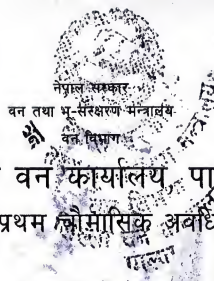 नेपाल सरकार
वन तथा भू-संरक्षण मन्त्रालय
वन विभाग
वन कार्यालय, पा
प्रथम चौमासिक अवधि